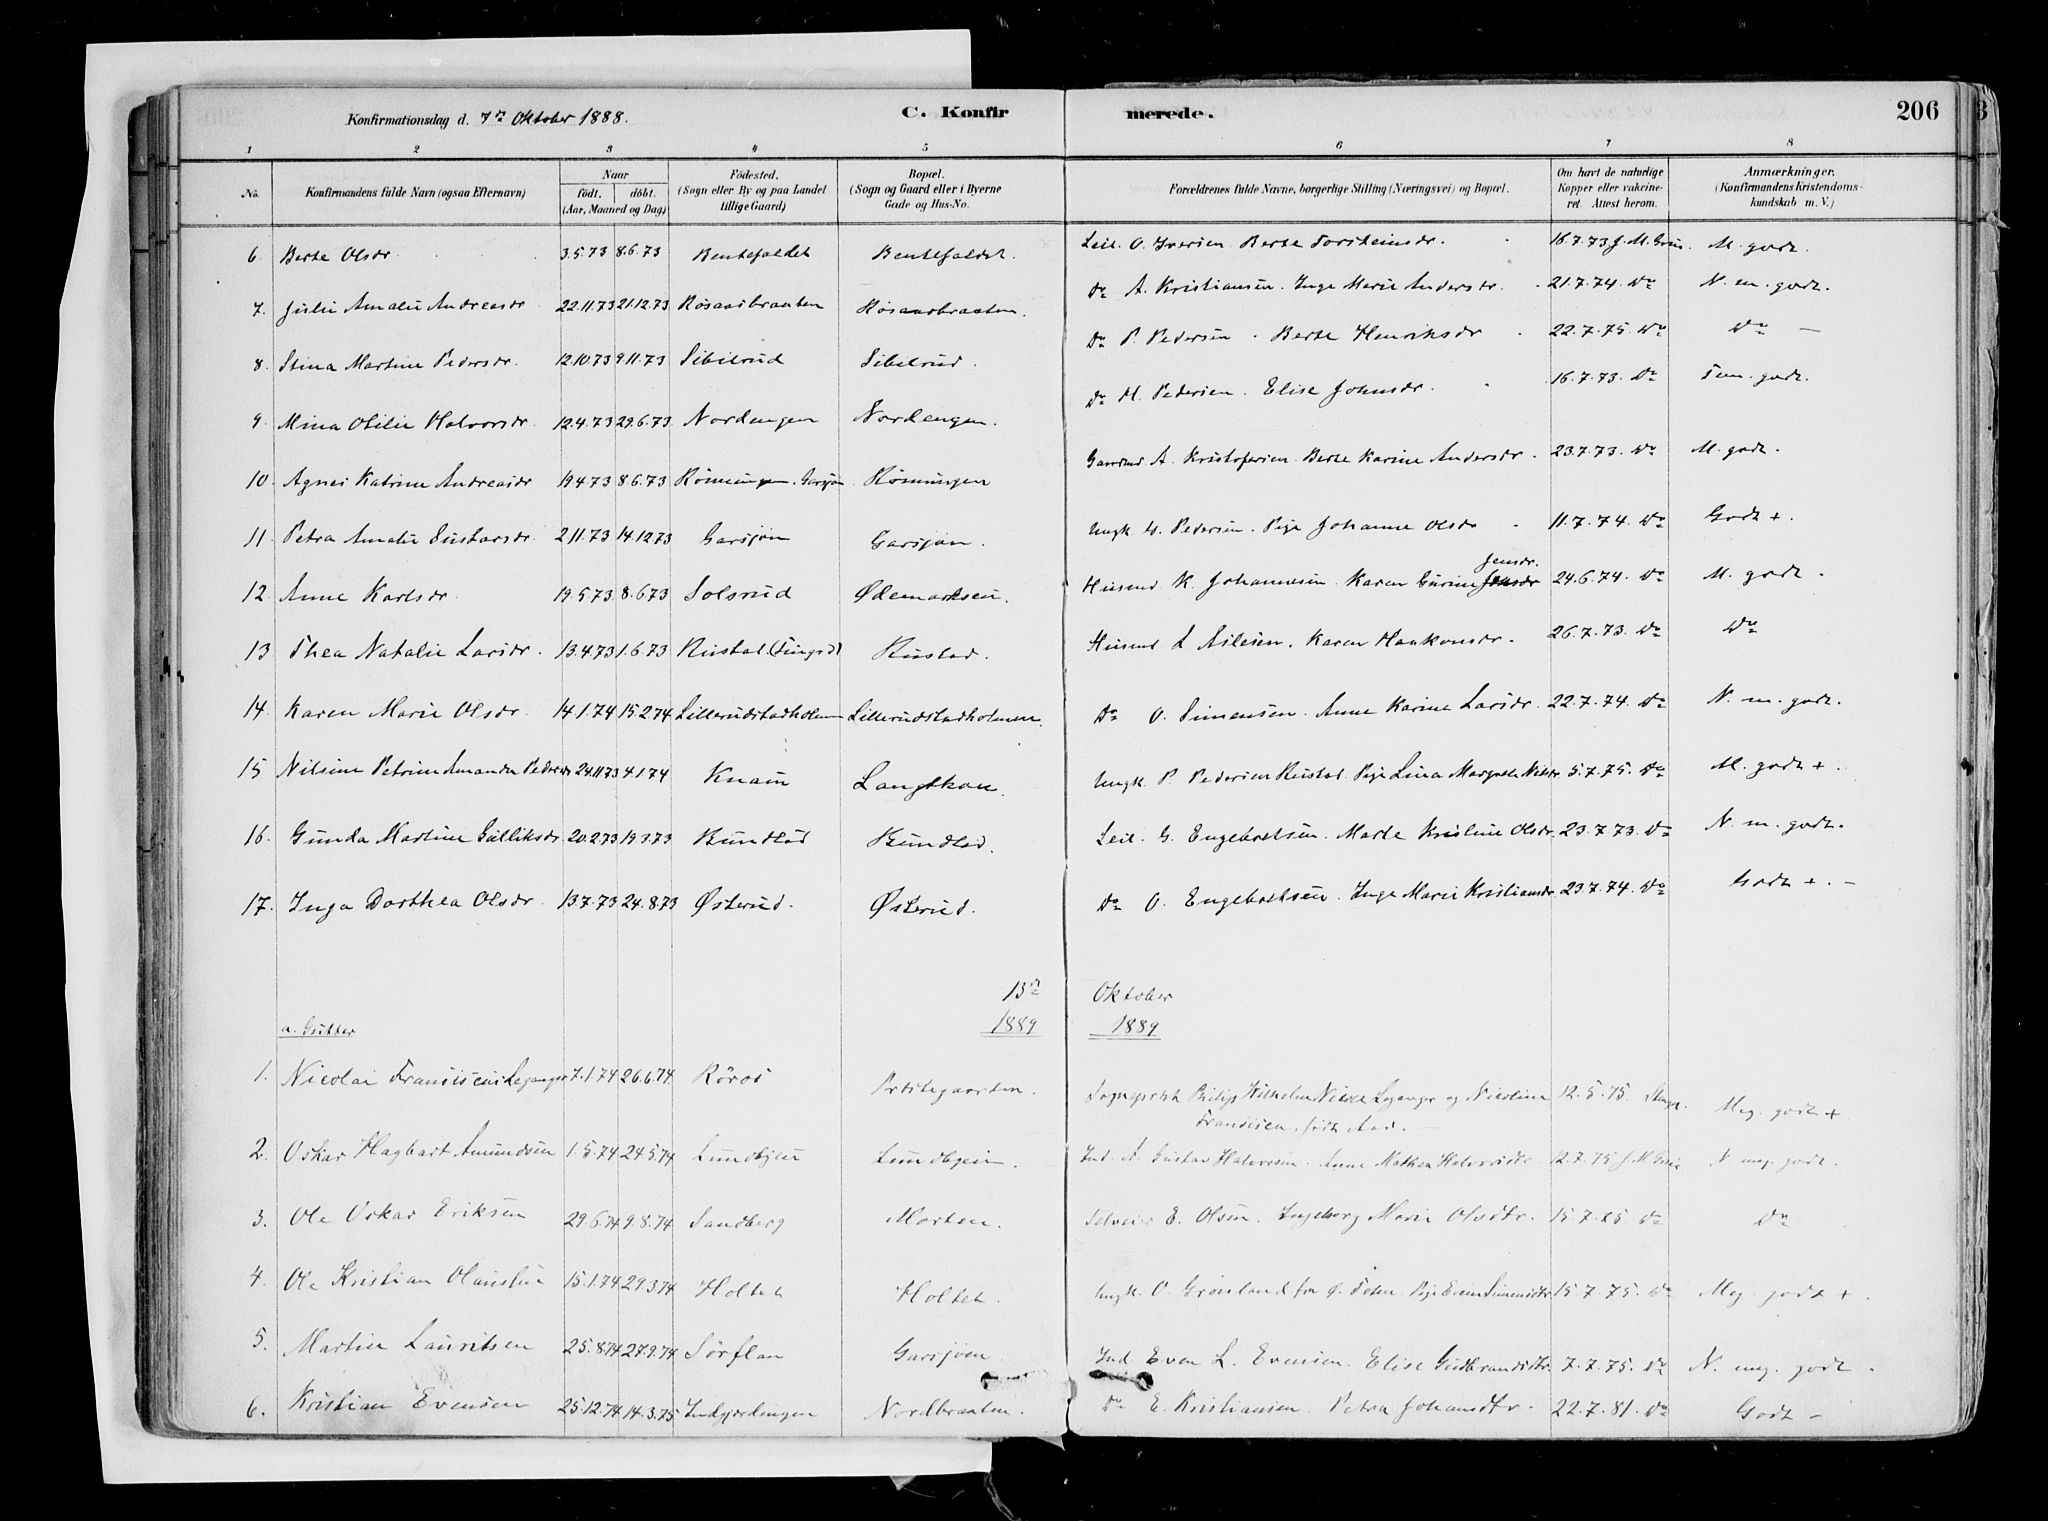 Konfirmationsdag d. 7de Oktober 1888. C. Konfirmerede. 206
1 2 3 4 5 6 7 8
No. Konfirmandens fulde Navn (ogsaa Efternavn) Naar født. døbt. (Aar, Maaned og Dag) Fødested. (Sogn eller By og paa Landet tillige Gaard) Bopæl. (Sogn og Gaard eller i Byerne Gade og Hus-No. Forældrenes fulde Navne, borgerlige Stilling (Næringsvei) og Bopæl. Om havt de naturlige Kopper eller vakcineret Attest herom. Anmærkninger. (Konfirmandens Kristendomskundskab m. V.)
6 Berte Olsdr. 3.5.73 8.6.73 Bentefaldet Bentefaldet. Leil. O. Iversen Berte Torsteinsdr. 16.7.73 J. M. Grin. M. godt.
7. Julie Amalie Andreasdr 22.11.73 21.12.73 Rösaasbraaten Rösaasbraaten. Do A. Kristiansen. Inge Marie Andersdr. 21.7.74. Do N. m. godt.
8. Stina Martine Pedersdr. 12.10.73 9.11.73 Sibilrud Sibilrud. Do P. Pedersen. Berte Henriksdr 22.7.75. Do Do —
9. Mina Otilie Halvorsdr. 12.4.73 29.6.73 Nordengen Nordengen. Do H. Pedersen. Elise Johnsdr. 16.7.73. Do Tem. godt.
10. Agnes Katrine Andreasdr 19.4.73 8.6.73 Römungen. Garsjön Römungen Gaardmd A. Kristofersen Berte Karine Andersdr. 23.7.73. Do M. godt.
11. Petra Amalie Gustavsdr. 2.11.73 14.12.73 Garsjön Garsjön. Ungk. G. Pedersen. Pige Johanne Olsdr 11.7.74. Do Godt +.
12. Anne Karlsdr. 19.5.73 8.6.73 Solsrud Ødemarksen. Husmd K. Johannesen. Karen Gurine Jensdr. 24.6.74. Do M. godt.
13 Thea Natalie Larsdr. 13.4.73 1.6.73 Rustad. Rustad. Husmd L. Nilsen. Karen Haakonsdr. 26.7.73. Do Do
14. Karen Marie Olsdr. 14.1.74 15.2.74 Lillerudstadholmen Lillerudstadholmen. Do O. Simensen. Anne Karine Larsdr. 22.7.74. Do N. m. godt.
15 Nilsine Petrine Amanda Pedersdr 24.11.73 4.1.74 Knain Langtkou. Ungk. P. Pedersen Rustad. Pige Lina Margrete Nilsdr. 5.7.75. Do M. godt +.
16. Gunda Martine Gulliksdr. 20.2.73 19.3.73 Bundlad Bundlad. Leil. G. Engebretsen. Marte Kristine Olsdr. 23.7.73. Do N. m. godt.
17. Inga Dorthea Olsdr. 13.7.73 24.8.73 Østerud. Østerud. Do O. Engebretsen. Inge Marie Kristiansdr. 23.7.74. Do Godt +. —
13de Oktober
a. Gutter 1889 1889
1. Nicolai Fransiscus Leganger 7.1.74 26.6.74. Röros Præstegaarden. Sogneprest Philip Wilhelm Nicolai Leganger og Nicoline 12.5.75. Meg. godt +
Fransisca. født Aas. —
2. Oskar Hagbart Amundsen 1.5.74 24.5.74 Lundbyeie Lundbyeie. Ind. A. Gustav Halvorsen. Anne Mathea Halvorsdtr. 12.7.75 J. M. Grin N. meg. godt.
3. Ole Oskar Eriksen 29.6.74 9.8.74 Sandberg Morten. Selveier E. Olsen. Ingeborg Marie Olsdtr. 15.7.75. Do Do
4. Ole Kristian Olausen 15.1.74 29.3.74 Holtet Holtet. Ungk. O. Grönland fra Pige Simensdtr. 15.7.75. Do Meg. godt +.
5. Martin Lauritsen 25.8.74 27.9.74 Sörflan Garsjöen Ind. Even L. Evensen. Elise Gudbrandsdtr. 7.7.75. Do N. meg. godt.
6. Kristian Evensen 25.12.74 14.3.75 Indgjerdingen Nordbraaten. Do E. Kristiansen. Petra Johansdtr. 22.7.81. Do Godt —